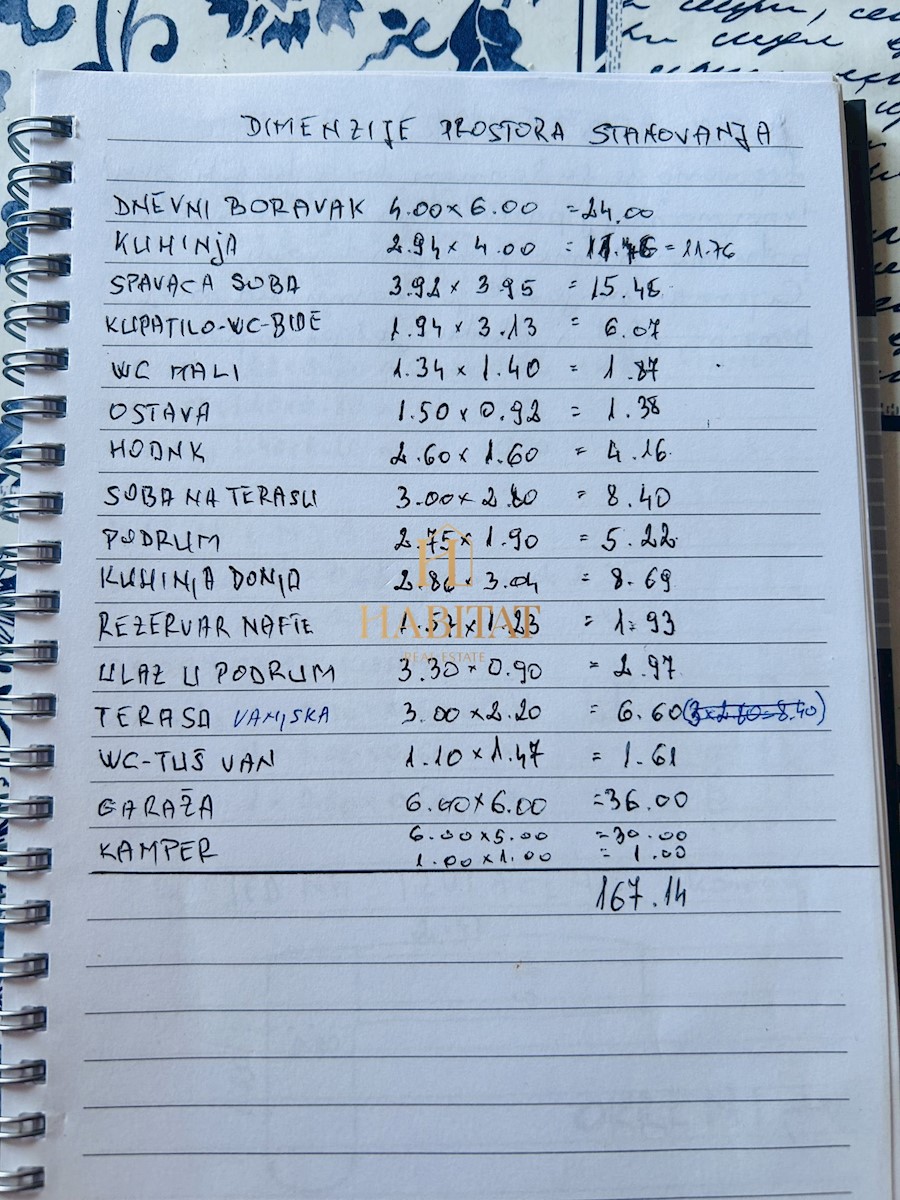 DIMENZIJE PROSTORA STANOVANJA
DNEVNI BORAVAK 4.00 x 6.00 = 24.00
KUHINJA 2.94 x 4.00 = = 11.76
SPAVACA SOBA 3.92 x 3.95 = 15.48
KUPATILO-WC-BIDE 1.94 x 3.13 = 6.07
WC MALI 1.34 x 1.40 = 1.87
OSTAVA 1.50 x 0.92 = 1.38
HODNK 2.60 x 1.60 = 4.16
SOBA NA TERASU 3.00 x 2.80 = 8.40
PODRUM 2.75 x 1.90 = 5.22
KUHINJA DONJA 2.86 x 3.04 = 8.69
REZERVAR NAFTE x 1.23 = 1.93
HABITAT
REAL ESTATE
ULAZ U PODRUM 3.30 x 0.90 = 2.97
TERASA VANJSKA 3.00 x 2.20 = 6.60 (3x2.80=8.40)
WC-TUŠ VAN 1.10 x 1.47 = 1.61
GARAŽA 6.00 x 6.00 = 36.00
KAMPER 6.00 x 5.00 = 30.00
1.00 x 1.00 = 1.00
167.14